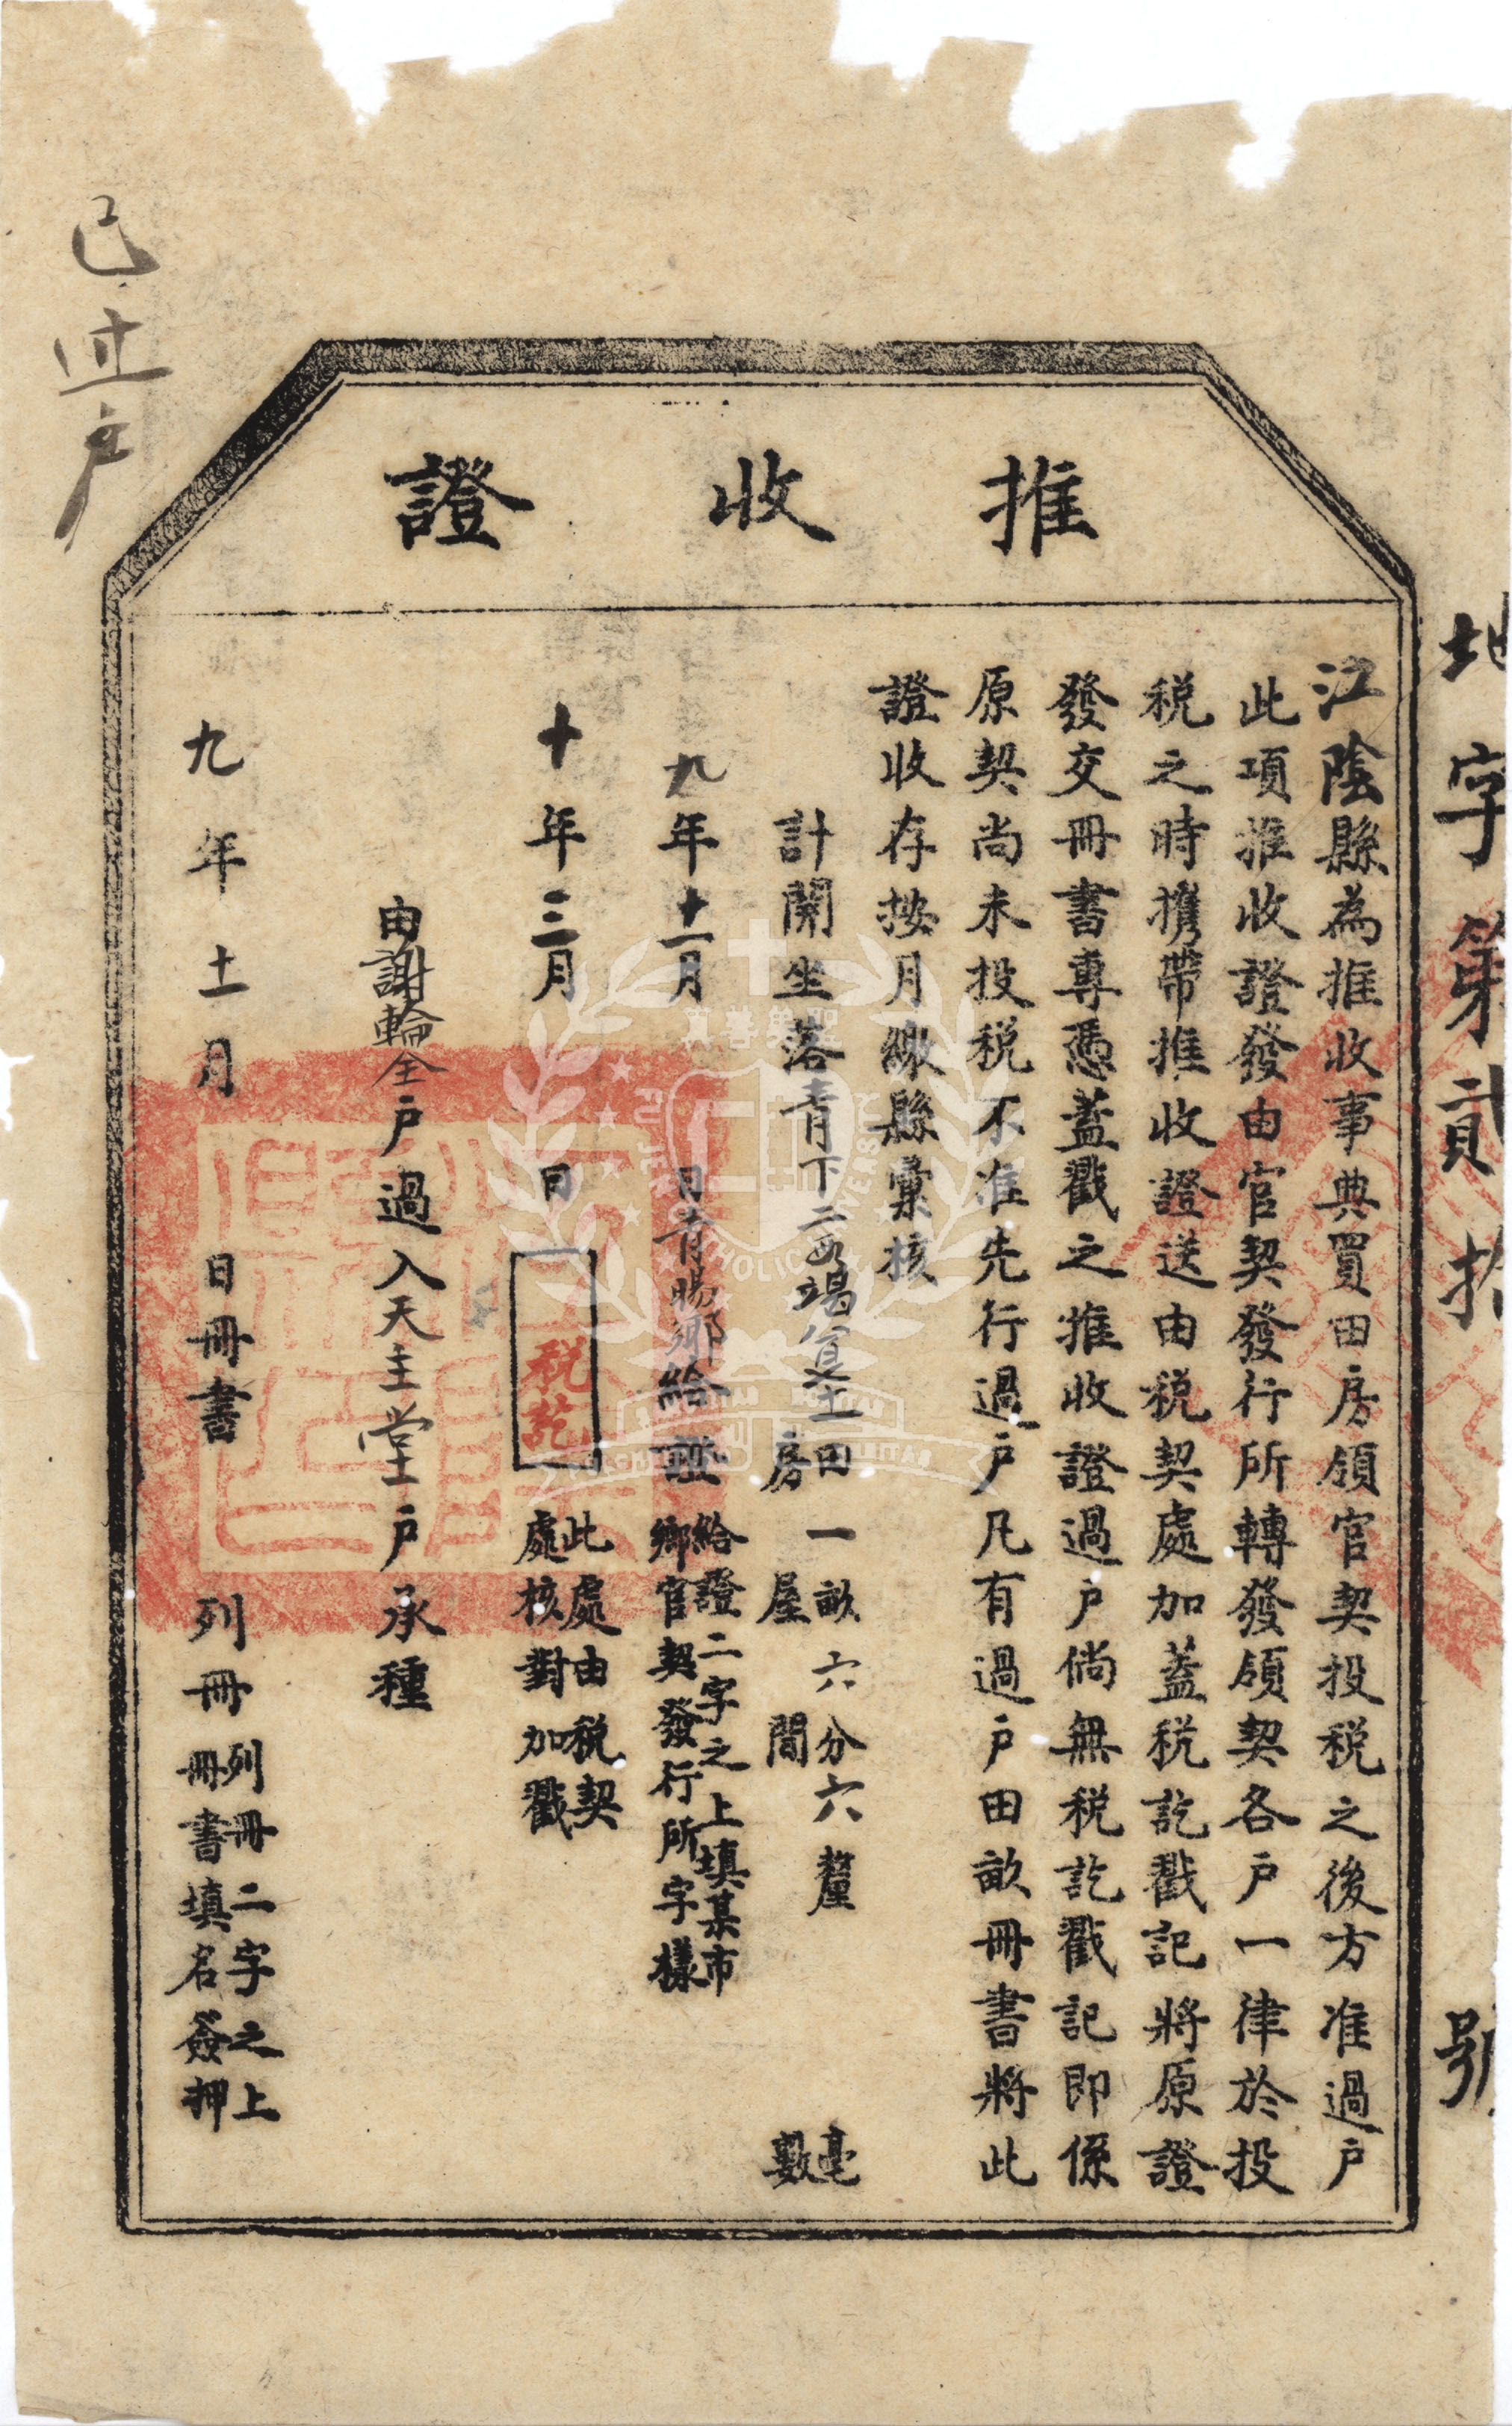 地字第貳拾 號
推收證
江陰縣為推收事典買田房領官契投税之後方准過戶
此項推收證發由官契發行所轉發領契各戶一律於投
税之時携帶推收證送由税契處加蓋税訖戳記將原證
發交冊書專憑蓋戳之推收證過戶倘無税訖戳記即係
原契尚未投税不准先行過戶凡有過戶田畝冊書將此
證收存按月繳縣彙核
計開坐落青下二 田一畝六分六釐 毫
房屋 間 數
九年十一月 日青暘鄉給證 給證二字之上填某市
鄉官契發行所字樣
十年三月 日 税訖 此處由税契
處核對加戳
由謝輪全戶過入天主堂戶承種
九年十一月 日冊書 列冊 列冊二字之上
冊書填名簽押
已过户